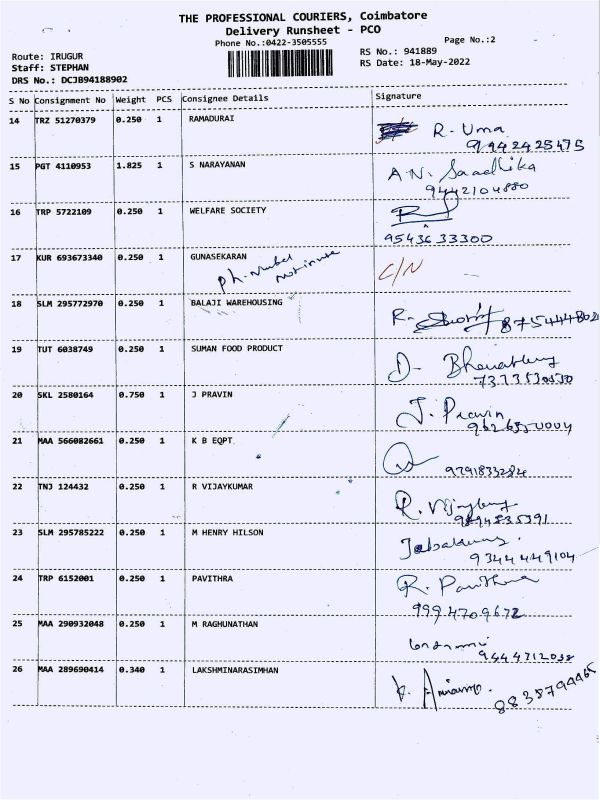 THE PROFESSIONAL COURIERS, Coimbatore
Delivery Runsheet - PCO
Phone No.:0422-3505555
Page No.:2
Route: IRUGUR
RS No.: 941889
Staff: STEPHAN
RS Date: 18-May-2022
DRS No.: DCJB94188902
S No Consignment No Weight PCS Consignee Details Signature
14 TRZ 51270379 0.250 1 RAMADURAI R. Uma
9942425475
15 PGT 4110953 1.825 1 S NARAYANAN A.N. Saadhika
9442104880
16 TRP 5722109 0.250 1 WELFARE SOCIETY
9543633300
17 KUR 693673340 0.250 1 GUNASEKARAN C/N
Ph. Number
18 SLM 295772970 0.250 1 BALAJI WAREHOUSING R.
19 TUT 6038749 0.250 1 SUMAN FOOD PRODUCT D.
20 SKL 2580164 0.750 1 J PRAVIN J. Pravin
21 MAA 566082661 0.250 1 K B EQPT.
9791833284
22 TNJ 124432 0.250 1 R VIJAYKUMAR R.
9894835391
23 SLM 295785222 0.250 1 M HENRY HILSON
9344449104
24 TRP 6152001 0.250 1 PAVITHRA R. Pavithra
9994709672
25 MAA 290932048 0.250 1 M RAGHUNATHAN
9444712038
26 MAA 289690414 0.340 1 LAKSHMINARASIMHAN
8838794465